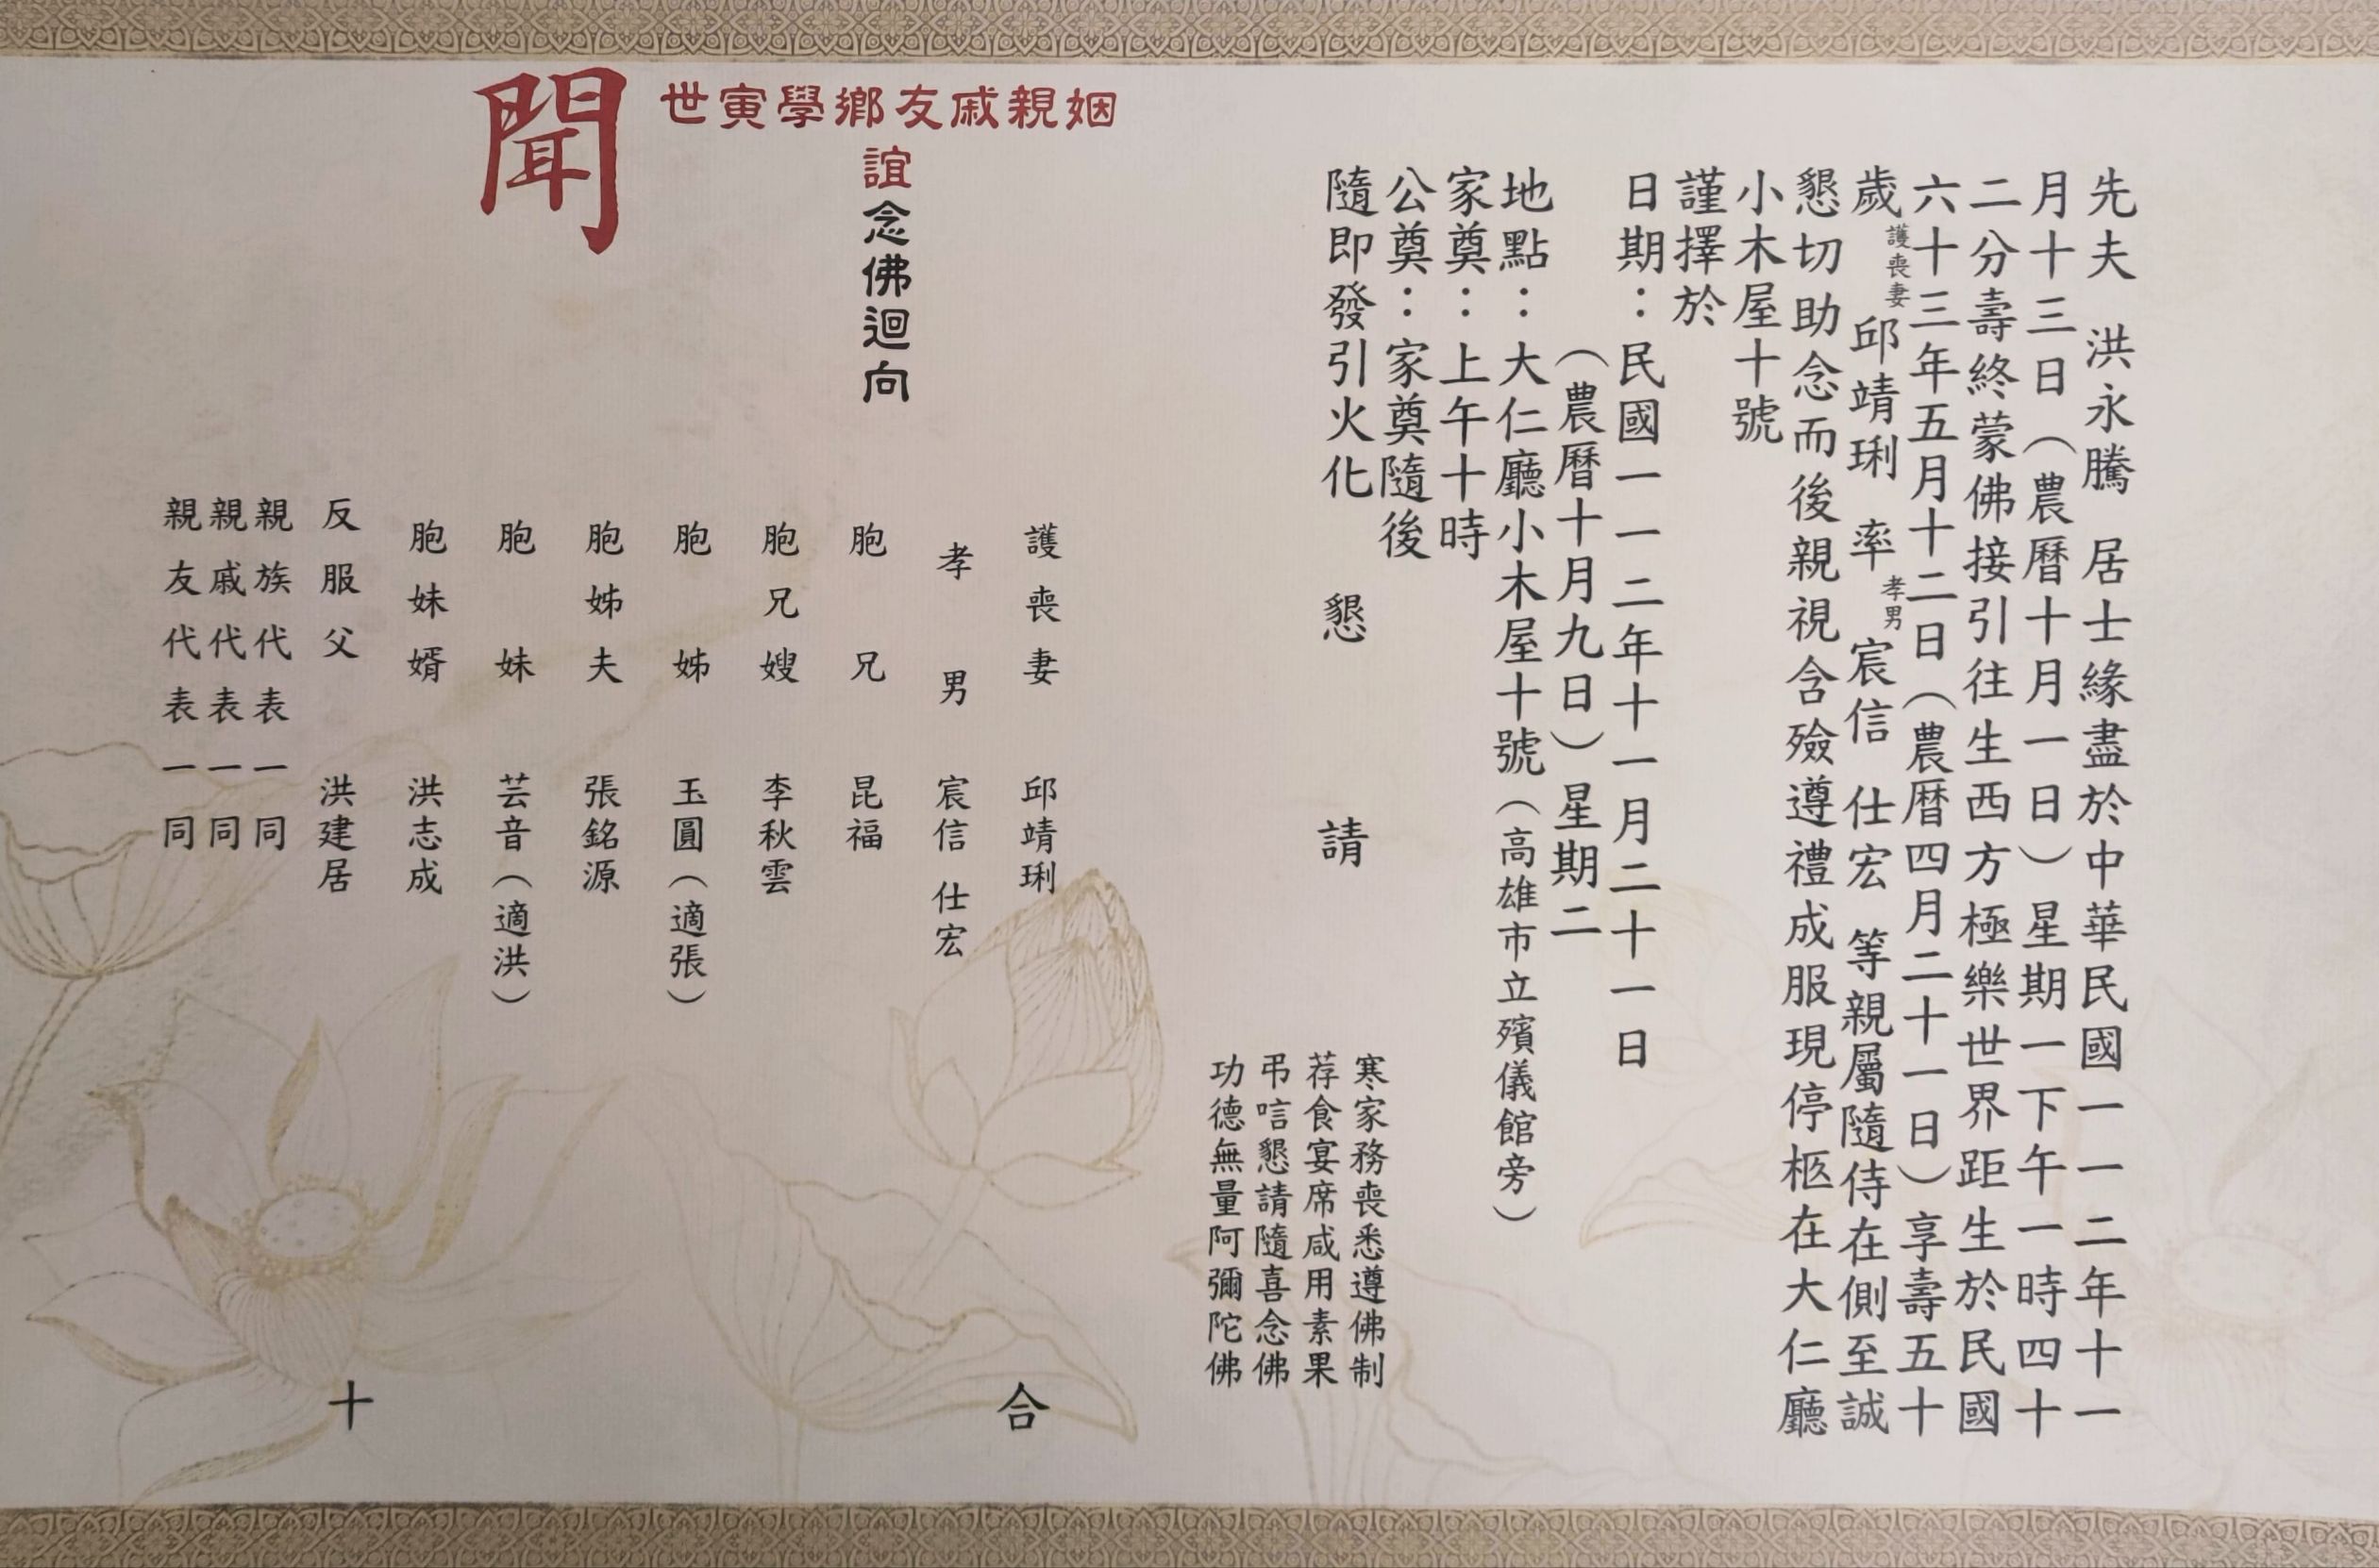 先夫 洪永騰 居士緣盡於中華民國一一二年十一
月十三日（農曆十月一日）星期一下午一時四十
二分壽終蒙佛接引往生西方極樂世界距生於民國
六十三年五月十二日（農曆四月二十一日）享壽五十
歲護喪妻 邱靖琍 率 孝男 宸信 仕宏 等親屬隨侍在側至誠
懇切助念而後親視含殮遵禮成服現停柩在大仁廳
小木屋十號
謹擇於
日期：民國一一二年十一月二十一日
（農曆十月九日）星期二
地點：大仁廳小木屋十號（高雄市立殯儀館旁）
家奠：上午十時
公奠：家奠隨後
隨即發引火化 懇 請
寒家務喪悉遵佛制
荐食宴席咸用素果
弔唁懇請隨喜念佛
功德無量阿彌陀佛
姻親戚友鄉學寅世
誼念佛迴向
聞
護喪妻 邱靖琍
孝男 宸信 仕宏
胞兄 昆福
胞兄嫂 李秋雲
胞姊 玉圓（適張）
胞姊夫 張銘源
胞妹 芸音（適洪）
胞妹婿 洪志成
反服父 洪建居
親族代表一同
親戚代表一同
親友代表一同
合 十